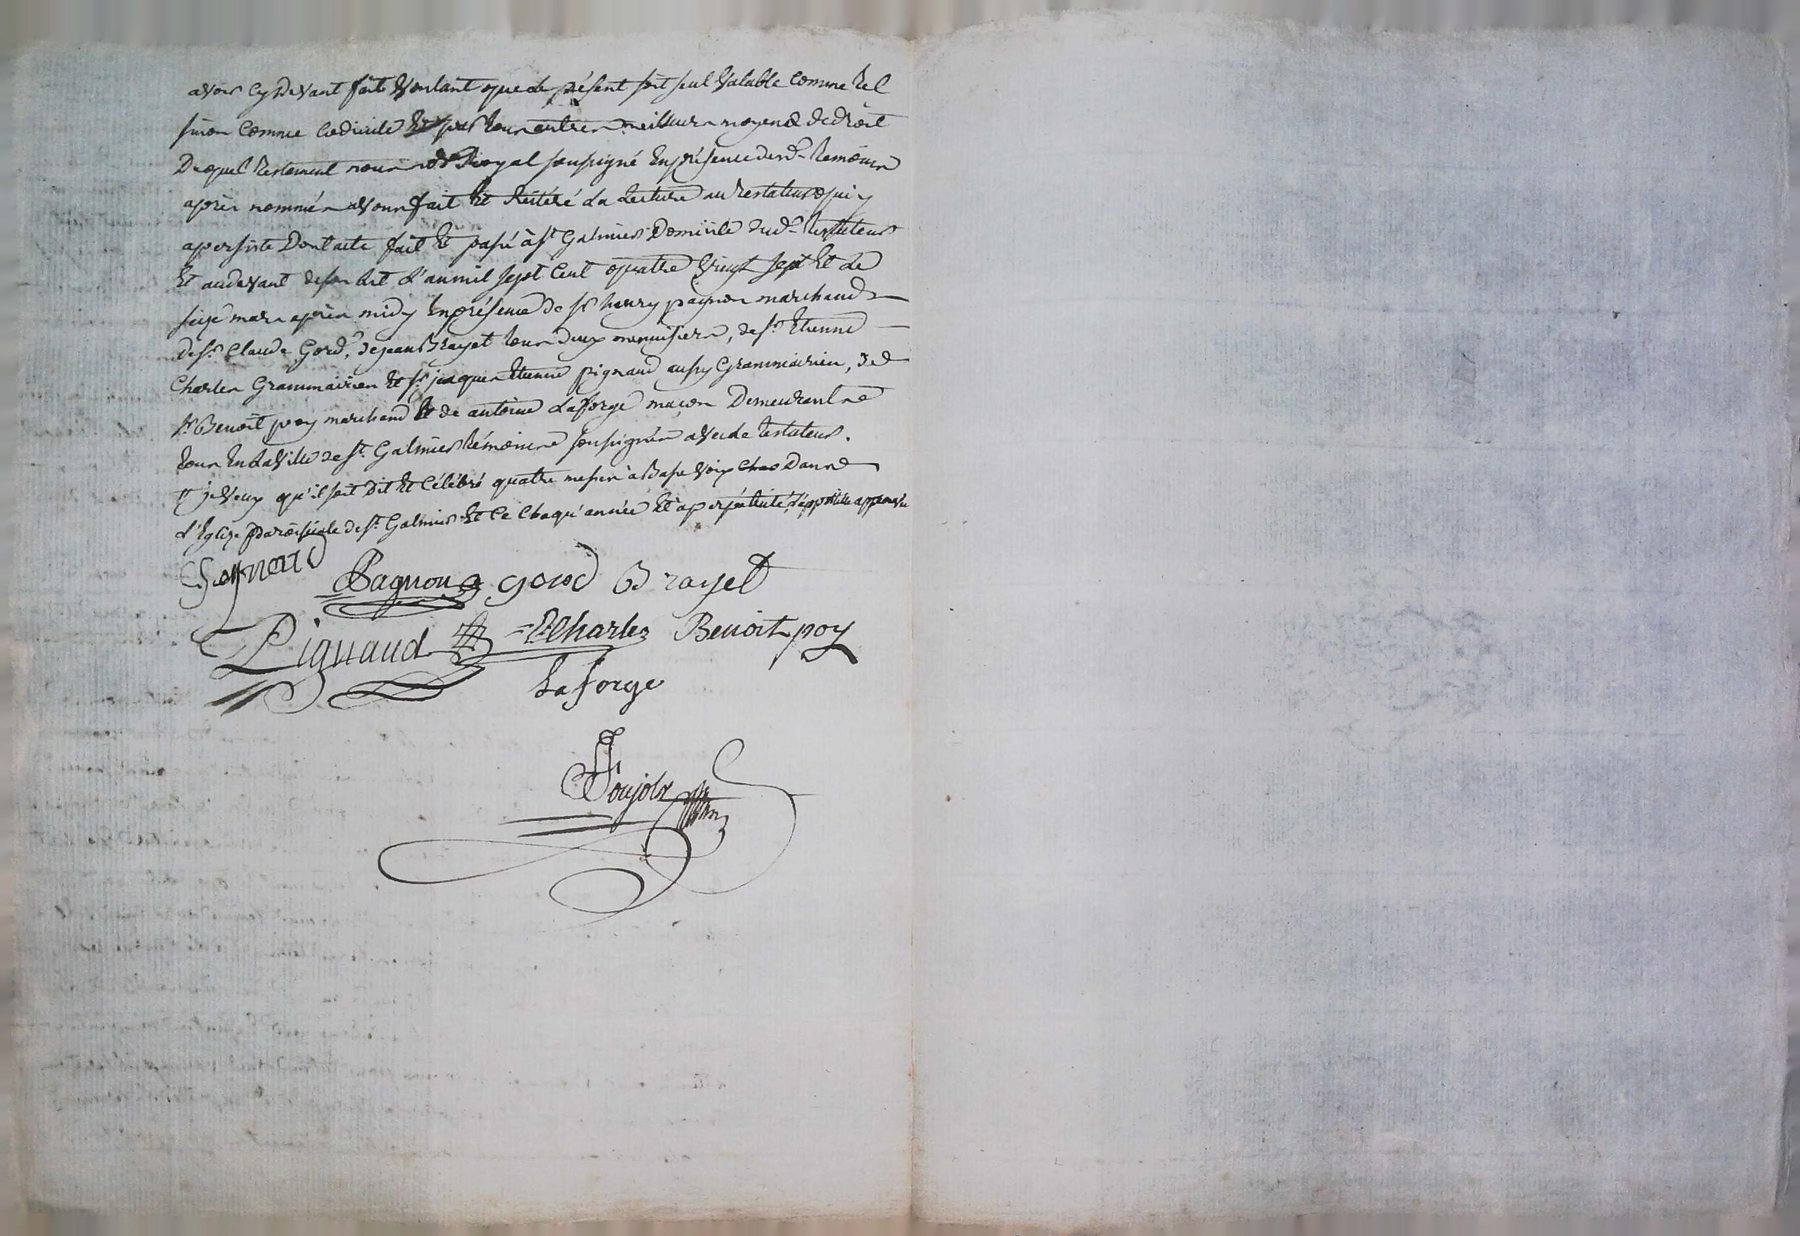 avoir cy devant fait voulant que le présent soit seul valable comme tel
sinon comme codicile et par tous autres meilleurs moyens de droit
Duquel testament nous no.re Royal soussigné En présence des d. temoins
après nommés avons fait Et Réitéré la Lecture au testateur qui y
a persisté Dont acte fait Et passé à st Galmier Domicile du d. testateur
Et au devant de son lit l'an mil sept Cent quatre vingt sept Et le
seize mars après midy En présence de sr henry pagnon marchand
de sr. Claude Gord, de jean Brayet tous deux menuisiers, de sr. Etienne
Charles Grammairien Et sr. jacques Etienne pignaud aussy Grammairien, de
sr Benoit poy marchand Et de antoine Laforge maçon Demeurant
tous En la Ville de st. Galmier témoins soussignés avec le testateur.
je veux qu'il soit dit Et Célébré quatre messes à Basse voix Dans
l'Eglise Paroissiale de st. Galmier Et Ce Chaqu'année Et à perpétuité, apostille approuvée
Pagnon gord Brayet
Pignaud E Charles Benoit poy
Laforge